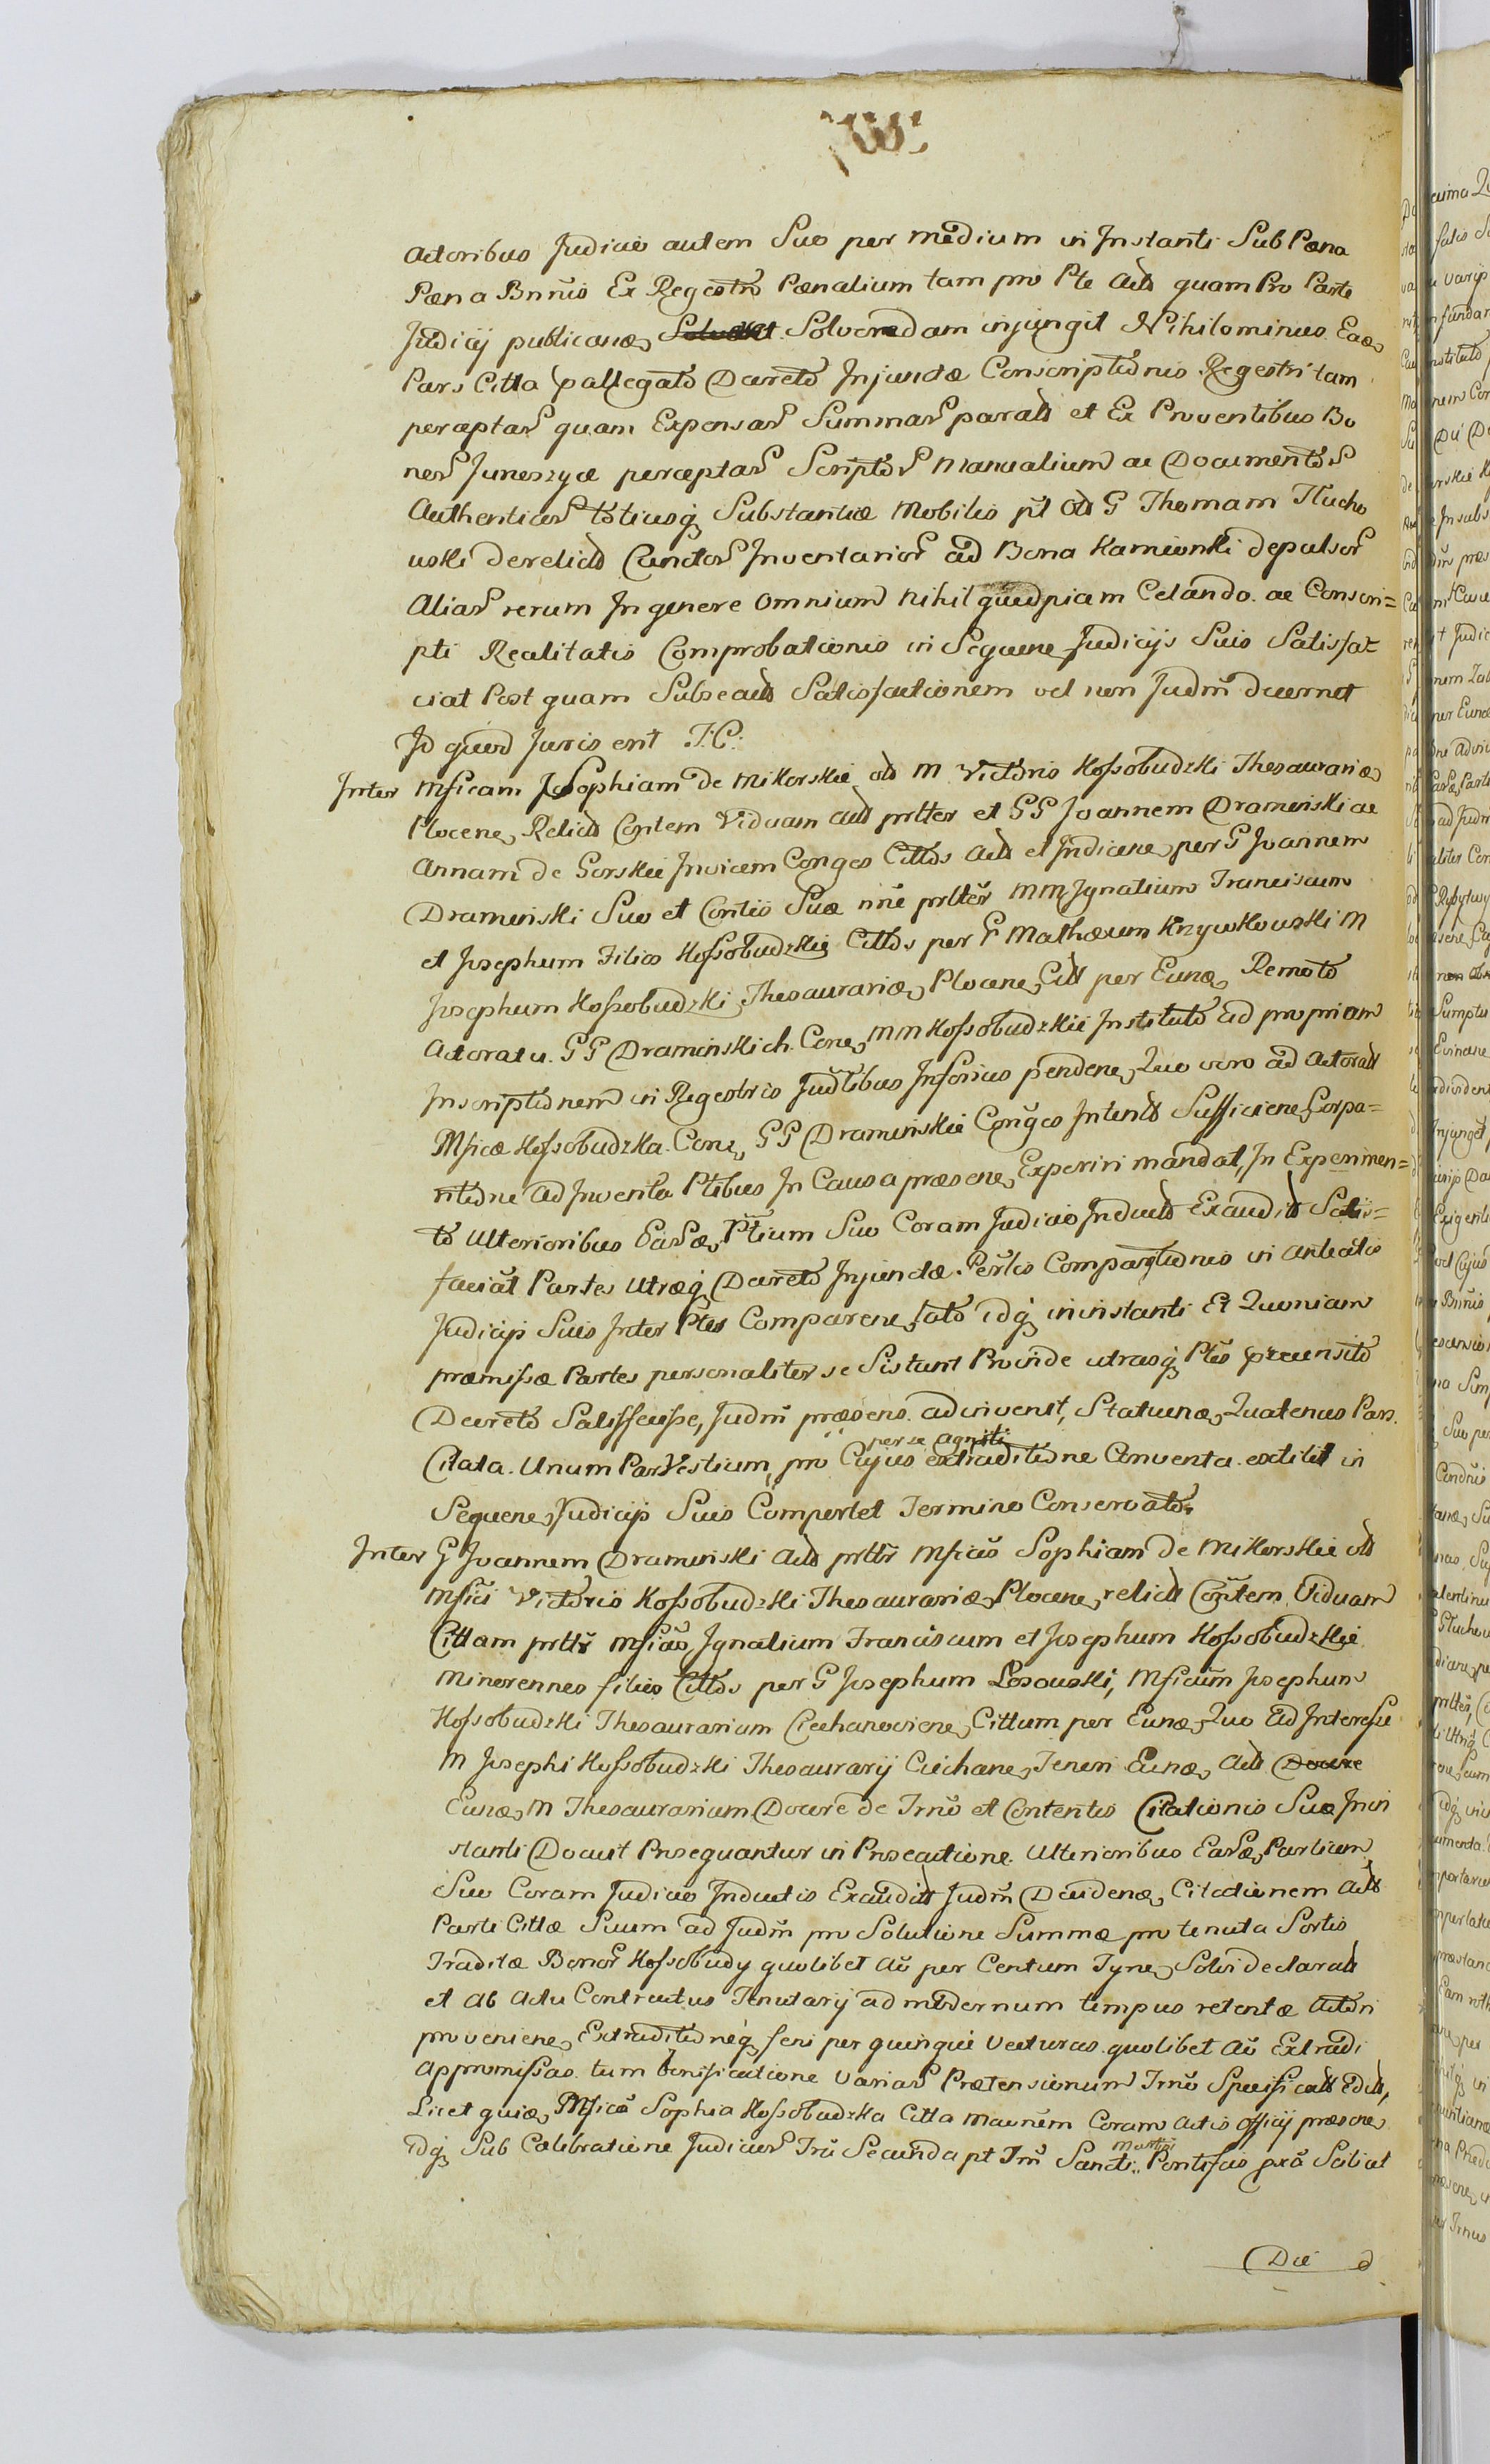 Actoribus Judicio autem Suo per medium in Instanti Sub Pœna
Pœna Bnnis Ex Regestro Pœnalium tam pro Pte Acts quam Pro Parte
Judicij publicanæ Solvendam injungit Nihilominus Eaæ
Pars Citta pallegato Decreto Injunctæ Conscriptionis Regestri tam
perceptar quam Expensar Summar parats et Ex Proventibus Bo
nor Juneszyce perceptar Scriptor Manualium ac Documentor
Authenticor totiusq Substantiæ Mobilis pt ol G Thomam Tłucho
wski derelict Cunctor Inventarior ad Bona Kamionki depulsor
Aliar rerum In genere omnium nihil quidpiam Celando ac Conscri=
pti Realitatis Comprobationis in Sequene Judicijs Suis Satisfa=
ciat Post quam Subsecuts Satisfactionem vel non Judm decernet
Id quod Juris erit I:C:
Inter Mficam Sophiam de Mikorskie ol M Victoris Kossobudzki Thesaurariæ
Plocene Relicts Contem Viduam Acts prtter et GG Joannem Dramiński ac
Annam de Gorskie Invicem Conges Cittos Acts et Judicene per G Joannem
Dramiński Suo et Contis Suæ nne prtter MM Ignatium Franciscum
et Josephum Filios Kossobudzkie Cittos per G Mathæum Krzywkowski M
Josephum Kossobudzki Thesaurariæ Plocene Citt per Eunæ Remoto
Actoratu GG Dramińskich Cone MM Kossobudzkie Instituto Ad propriam
Inscriptionem in Regestris Judtibus Inferius pendene Quo vero ad Actorats
Mficæ Kossobudzka Cone GG Dramińskie Conges Intents Sufficiene Corpo=
ritione Ad Inventa Ptibus In Causa præsene Experiri mandat, In Experimen=
to Ulterioribus Earæ Ptium Suo Coram Judicio Inducts Exaudits Satis=
faciat Partes Utræq Decreto Injunctæ Perlis Comparitionis in Anteatis
Judicijs Suis Inter Ptes Comparene lato idq in instanti Et Quoniam
præmissæ Partes personaliter se Sistunt Proinde utrasq Ptes præcensito
Decreto Satisfecisse, Judm præsens adinvenit, Statuenæ Quatenus Pars
Citata Unum Par Vestium, pro Cujus per se Agniti extraditione Conventa extitit in
Sequene Judicijs Suis Comportet Termino Conservato.
Inter G Joannem Dramiński Acts prttr Mficas Sophiam de Mikorskie ol
Mfici Victoris Kossobudzki Thesaurariæ Plocene relicts Contem Viduam
Cittam prttr Mficas Ignatium Franciscum et Josephum Kossobudzkie
Minorennes filios Cittos per G Josephum Łosowski, Mficum Josephum
Kossobudzki Thesaurarium Ciechanociene Cittum per Eunæ Quo Ad Interesse
M Josephi Kossobudzki Thesaurarij Ciechane Teneri Eunæ Acts Docere
Eunæ M Thesaurarium Docere de Trno et Contentis Citationis Suæ In in
stanti Docuit Prosequantur in Prosecutione Ulterioribus Earæ Partium
Suo Coram Judicio Inductis Exaudits Judm Decidenæ Citationem Acts
Parti Cittæ Suum ad Judm pro Solutione Summæ pro tenuta Sortis
Traditæ Bonor Kossobudy quolibet Ao per Centum Tyne Solvi declarats
et ab Actu Contractus Tenutarij ad modernum tempus retentæ Actori
proveniene Extraditioneq feni per quinque Vecturas quolibet Ao Extradi
Appromissas tum bonificatione Variar Prætensionum Trno Specificats Edits,
Licet quiæ Mfica Sophia Kossobudzka Citta Maunem Coram Actis Officij præsene
idq Sub Celebratione Judicior Tru Secunda pt Im Sancti Martini Pontificis pxo Scilicet
Die